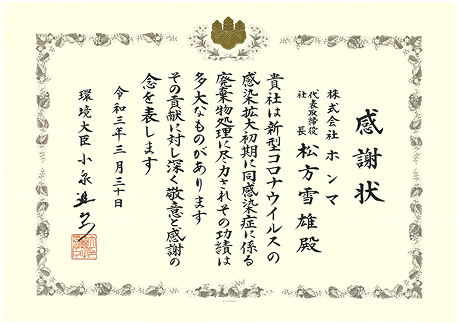 感謝状
株式会社 ホンマ
代表取締役
社長 松方雪雄殿
貴社は新型コロナウイルスの
感染拡大初期に同感染症に係る
廃棄物処理に尽力されその功績は
多大なものがあります
その貢献に対し深く敬意と感謝の
念を表します
令和三年三月三十日
環境大臣 小泉進